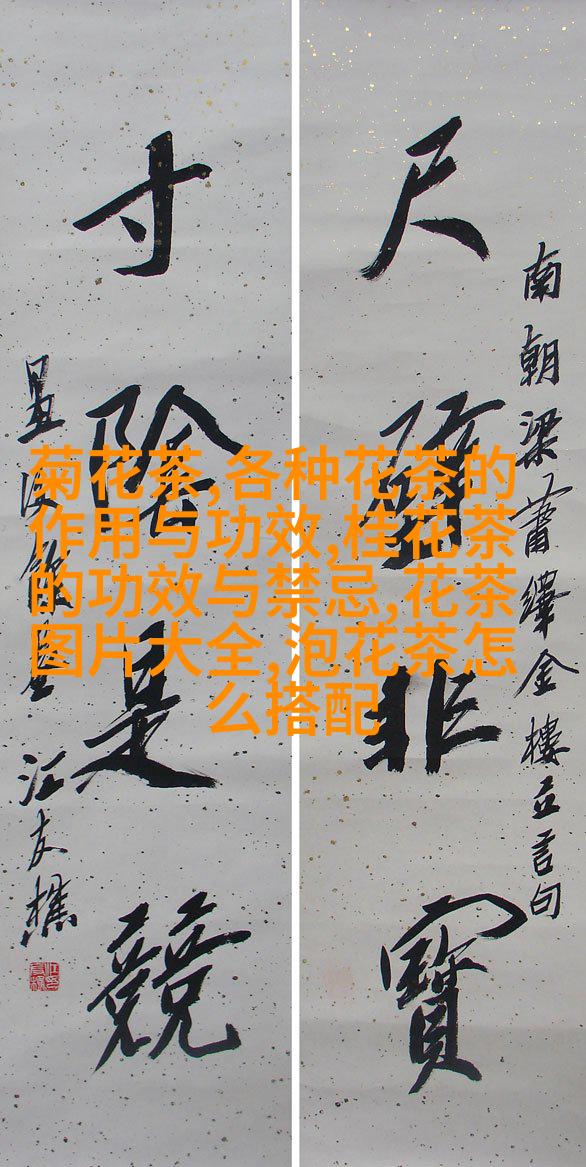 尺璧非寶
南朝梁蕭繹金樓立言句
寸陰是競
江友樵
菊花茶,各种花茶的
作用与功效,桂花茶
的功效与禁忌,花茶
图片大全,泡花茶怎
么搭配